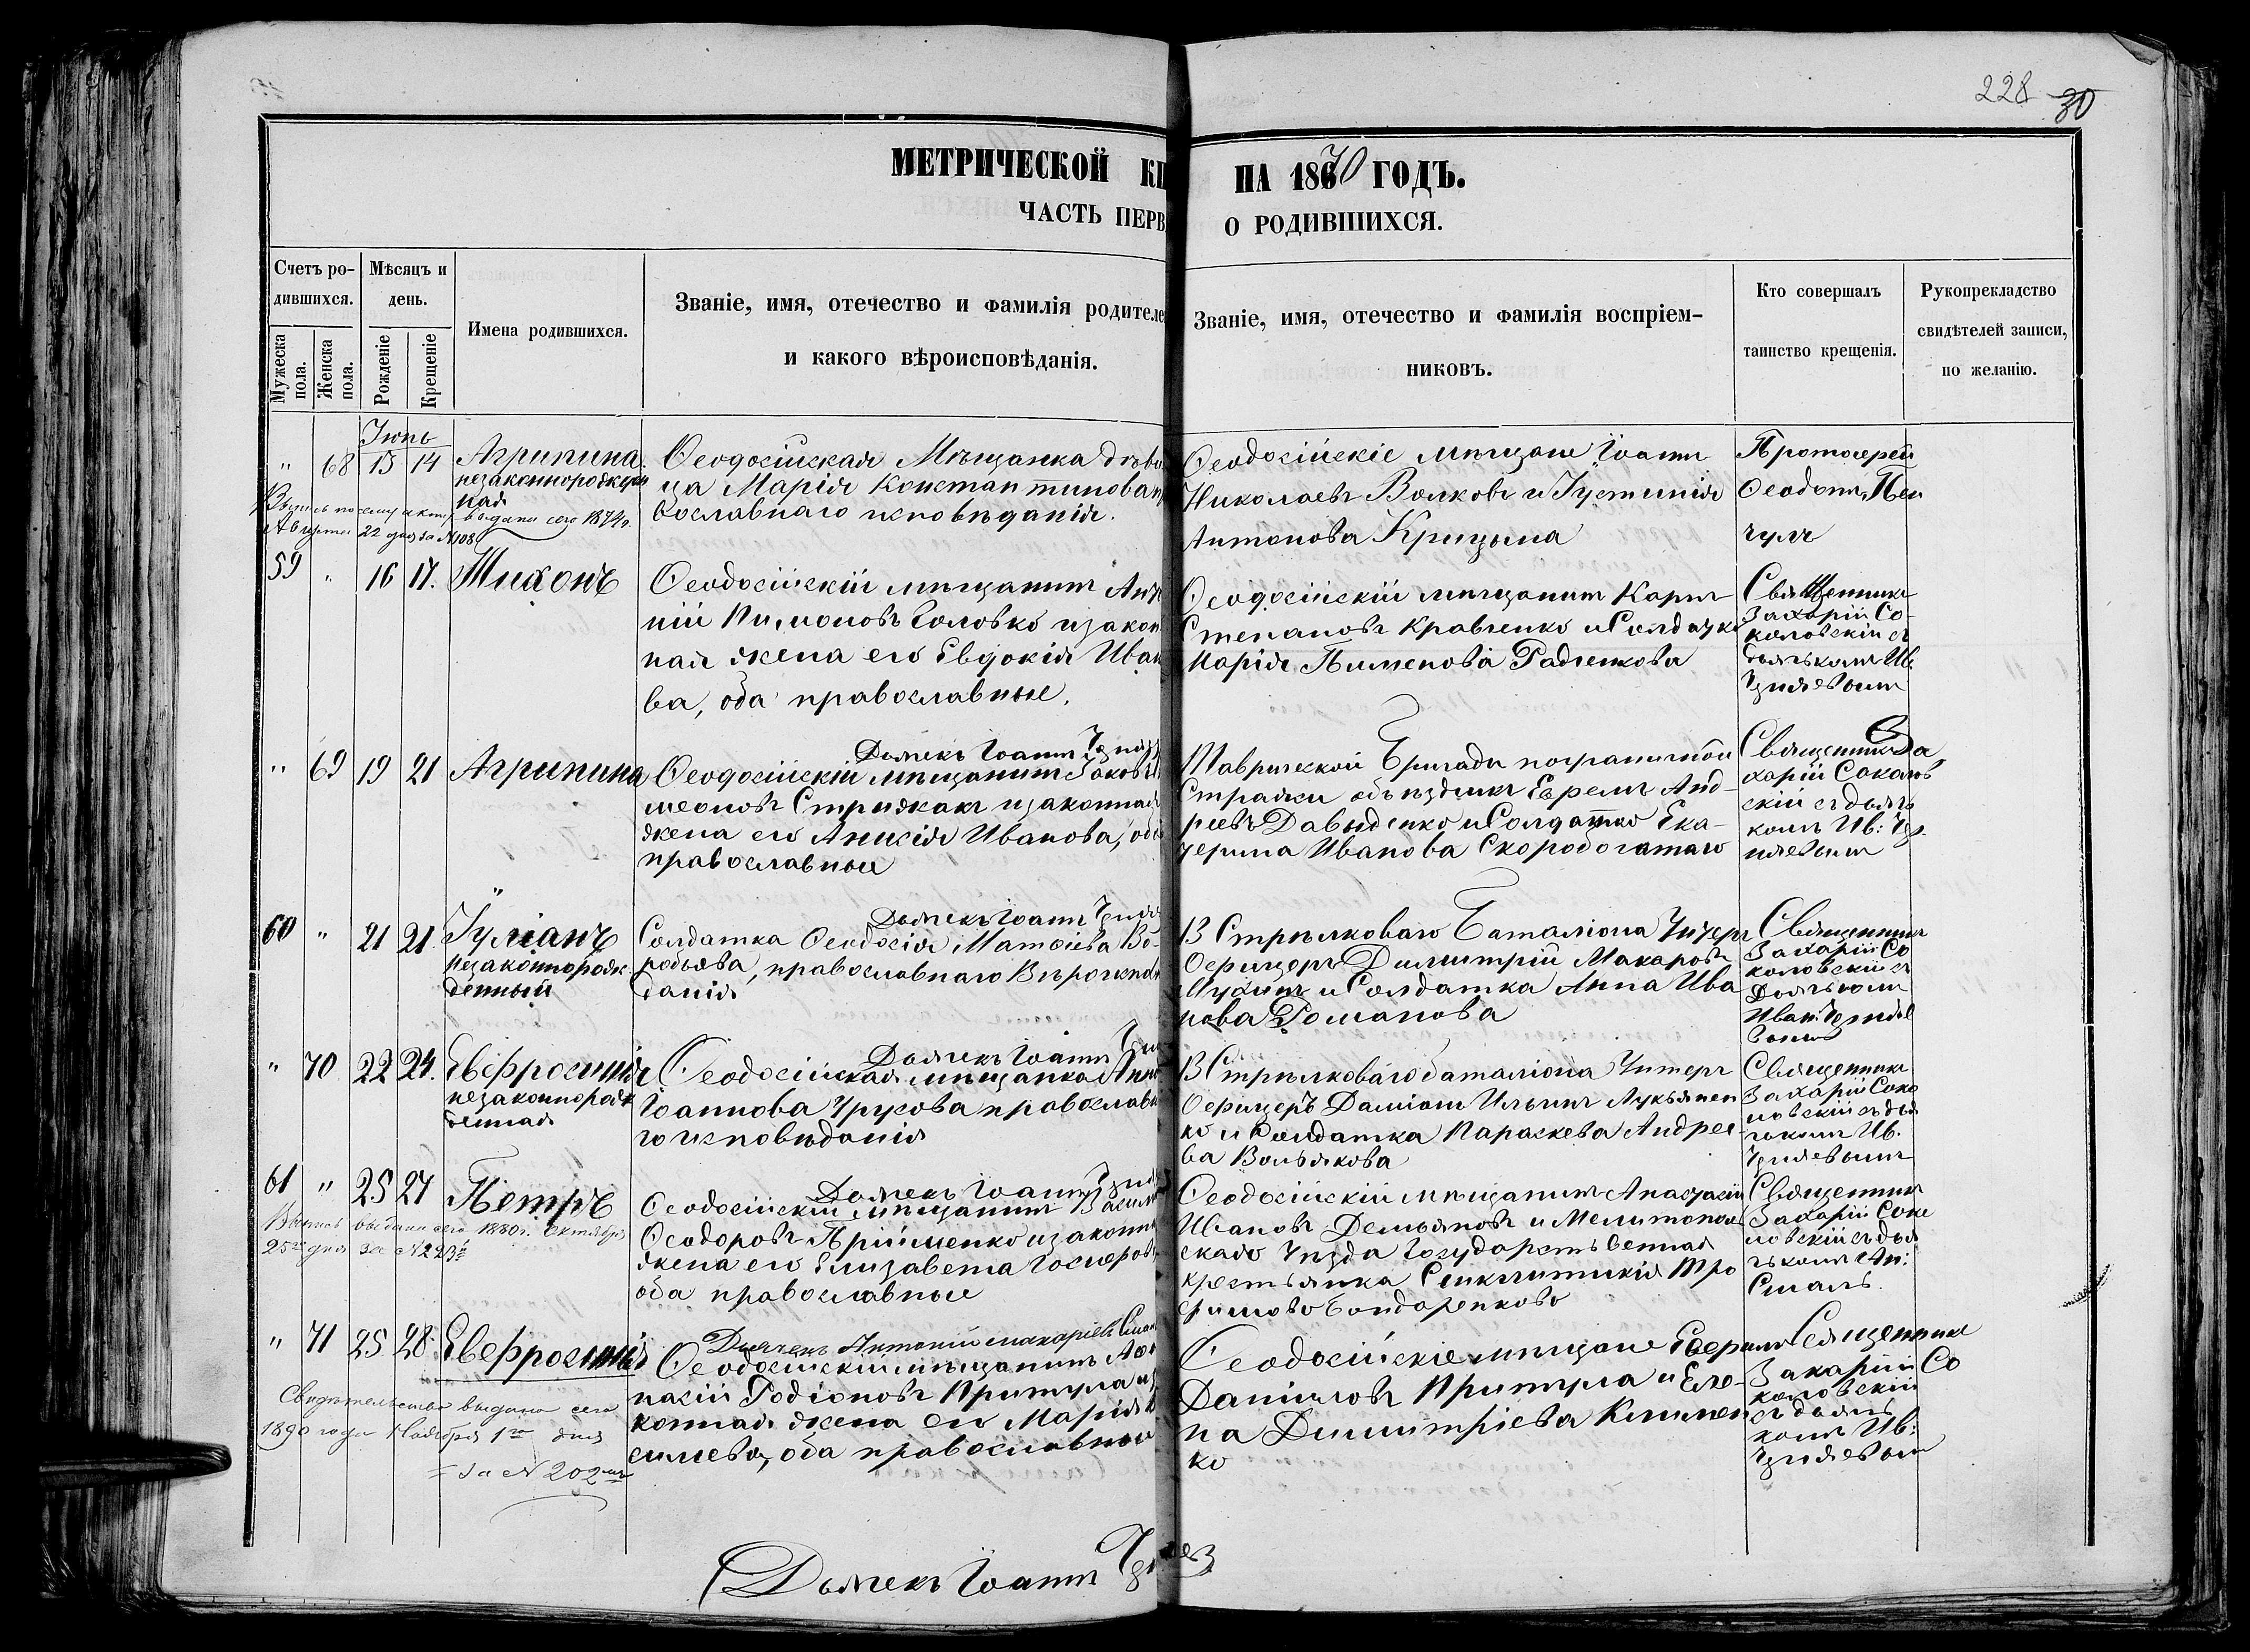 228 30
МЕТРИЧЕСКОЙ КН
НА 1870 ГОДЪ.
ЧАСТЬ ПЕРВ
О РОДИВШИХСЯ.
Счетъ ро-
дившихся.
Мужеска
пола.
Женска
пола.
Мѣсяцъ и
день.
Рожденіе
Крещеніе
Имена родившихся.
Званіе, имя, отечество и фамилія родителе
и какого вѣроисповѣданія.
Званіе, имя, отечество и фамилія воспріем-
никовъ.
Кто совершалъ
таинство крещенія.
Рукоприкладство
свидѣтелей записи,
по желанію.
Іюнь
" 68 13 14 Агрипина
незаконнорожден
ная
Ѳеодосійская Мѣщанка дѣви
ца Марія Константинова пр
вославнаго исповѣданія.
Ѳеодосійскіе мѣщане Іоаннъ
Николаевъ Волковъ и Іустинія
Антонова Крицына
Протоіерей
Ѳеодотъ
выдана сего 1874 г.
Августа 22 дня за №108
59 " 16 17. Тихонъ
Ѳеодосійскій мѣщанинъ
ній Пимоновъ Головко и закон
ная жена его Евдокія Иван
ва, оба православные.
Ѳеодосійскій мѣщанинъ Карпъ
Степановъ Кравченко и Солдатка
Марія Пименова Радченкова
Священникъ
Захарій Со-
коловскій съ
дьячкомъ Ив.
Дьячекъ Іоаннъ
" 69 19 21 Агрипина
Ѳеодосійскій мѣщанинъ Іаковъ
меоновъ Стрижакъ и законная
жена его Анисія Иванова, оба
православные
Таврической Бригады пограничной
Стражи объѣздчикъ Ефремъ Анд-
реевъ Давыденко и Солдатка Ека-
терина Иванова Скоробогатаго
Священникъ За
харій Соколов
скій съ дьяч
комъ Ив:
Дьячекъ Іоаннъ
60 " 21 21 Іуліанъ
незаконнорож
денный
Солдатка Ѳеодосія Матѳіева Во-
робьева, православнаго Вѣроиспов
данія
13 Стрѣлковаго Баталіона Унтеръ
Офицеръ Димитрій Макаровъ
и Солдатка Анна Ива
нова Романова
Священникъ
Захарій Со
коловскій съ
Дьячкомъ
Иван.
Дьячекъ Іоаннъ
" 70 22 24. Евфросинія
незаконнорож
денная
Ѳеодосійская мѣщанка Анна
Іоаннова Чрукова православна
го исповѣданія
13 Стрѣлковаго баталіона Унтеръ
Офицеръ Даміанъ Ильинъ Лукьянен
ко и Солдатка Параскева Андрее-
ва Вольякова
Священникъ
Захарій Соко
ловскій съ дья
чкомъ Ив.
Дьячекъ Іоаннъ
61 " 25 27 Петръ
Ѳеодосійскій мѣщанинъ Васил
Ѳеодоровъ Прійменко и законн
жена его Елизавета
оба православные
Ѳеодосійскій мѣщанинъ Анастасій
Ивановъ Демьяновъ и Мелитополь
скаго Уѣзда Государственная
крестьянка Синклитикія Тро
фимова Бондаренкова
Священникъ
Захарій Соко
ловскій съ дья
чкомъ Ан:
Смалъ.
Выпись выдана сего 1880 г. Октября
25го дня за №223
Дьячекъ Антоній Макаріевъ Смал
" 71 25 28. Евфросинія
Ѳеодосійскій мѣщанинъ Аѳа
насій Родіоновъ Притула и за
конная жена его Марія
симева, оба православные
Ѳеодосійскіе мѣщане Ефремъ
Даніиловъ Притула и Еле-
на Димитріева Климен
ко
Священникъ
Захарій Со
коловскій
съ дьяч
комъ Ив:
Свидѣтельство выдано сего
1890 года Ноября 1го дня
за № 202
Дьячекъ Іоаннъ